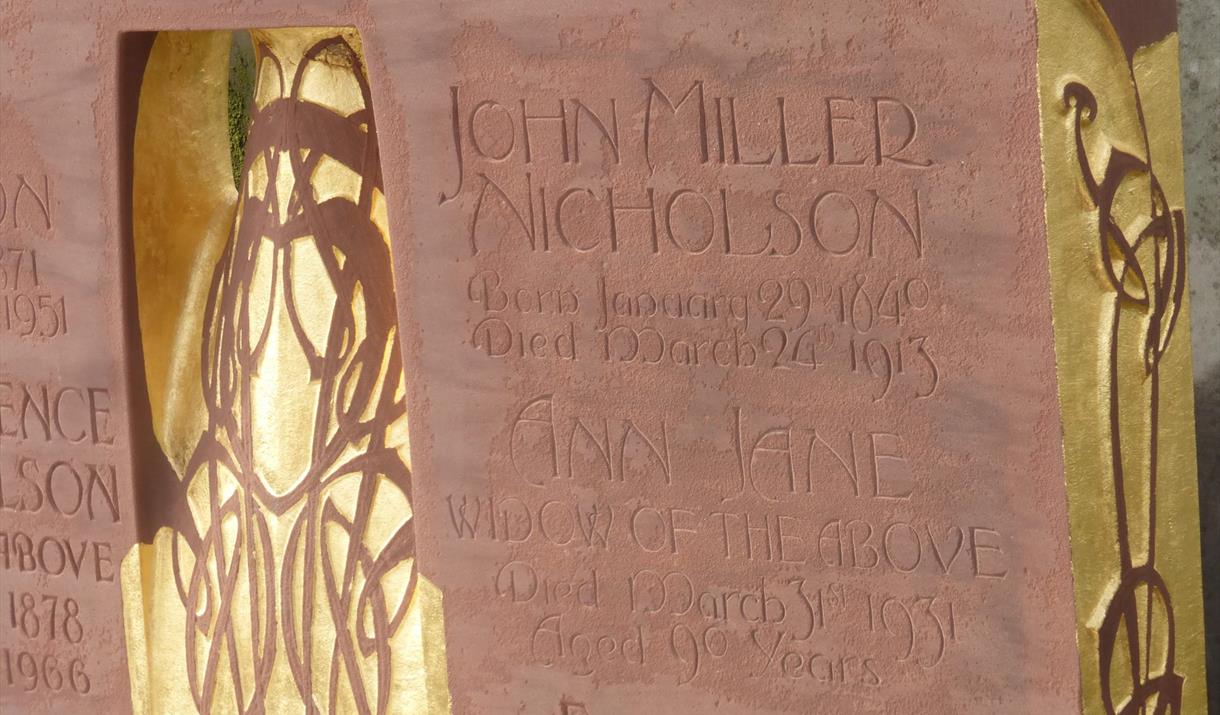 ON
871
1951
ENCE
LSON
ABOVE
1878
1966
JOHN MILLER
NICHOLSON
Born January 29th 1840
Died March 24th 1913
ANN JANE
WIDOW OF THE ABOVE
Died March 31st 1931
Aged 90 Years